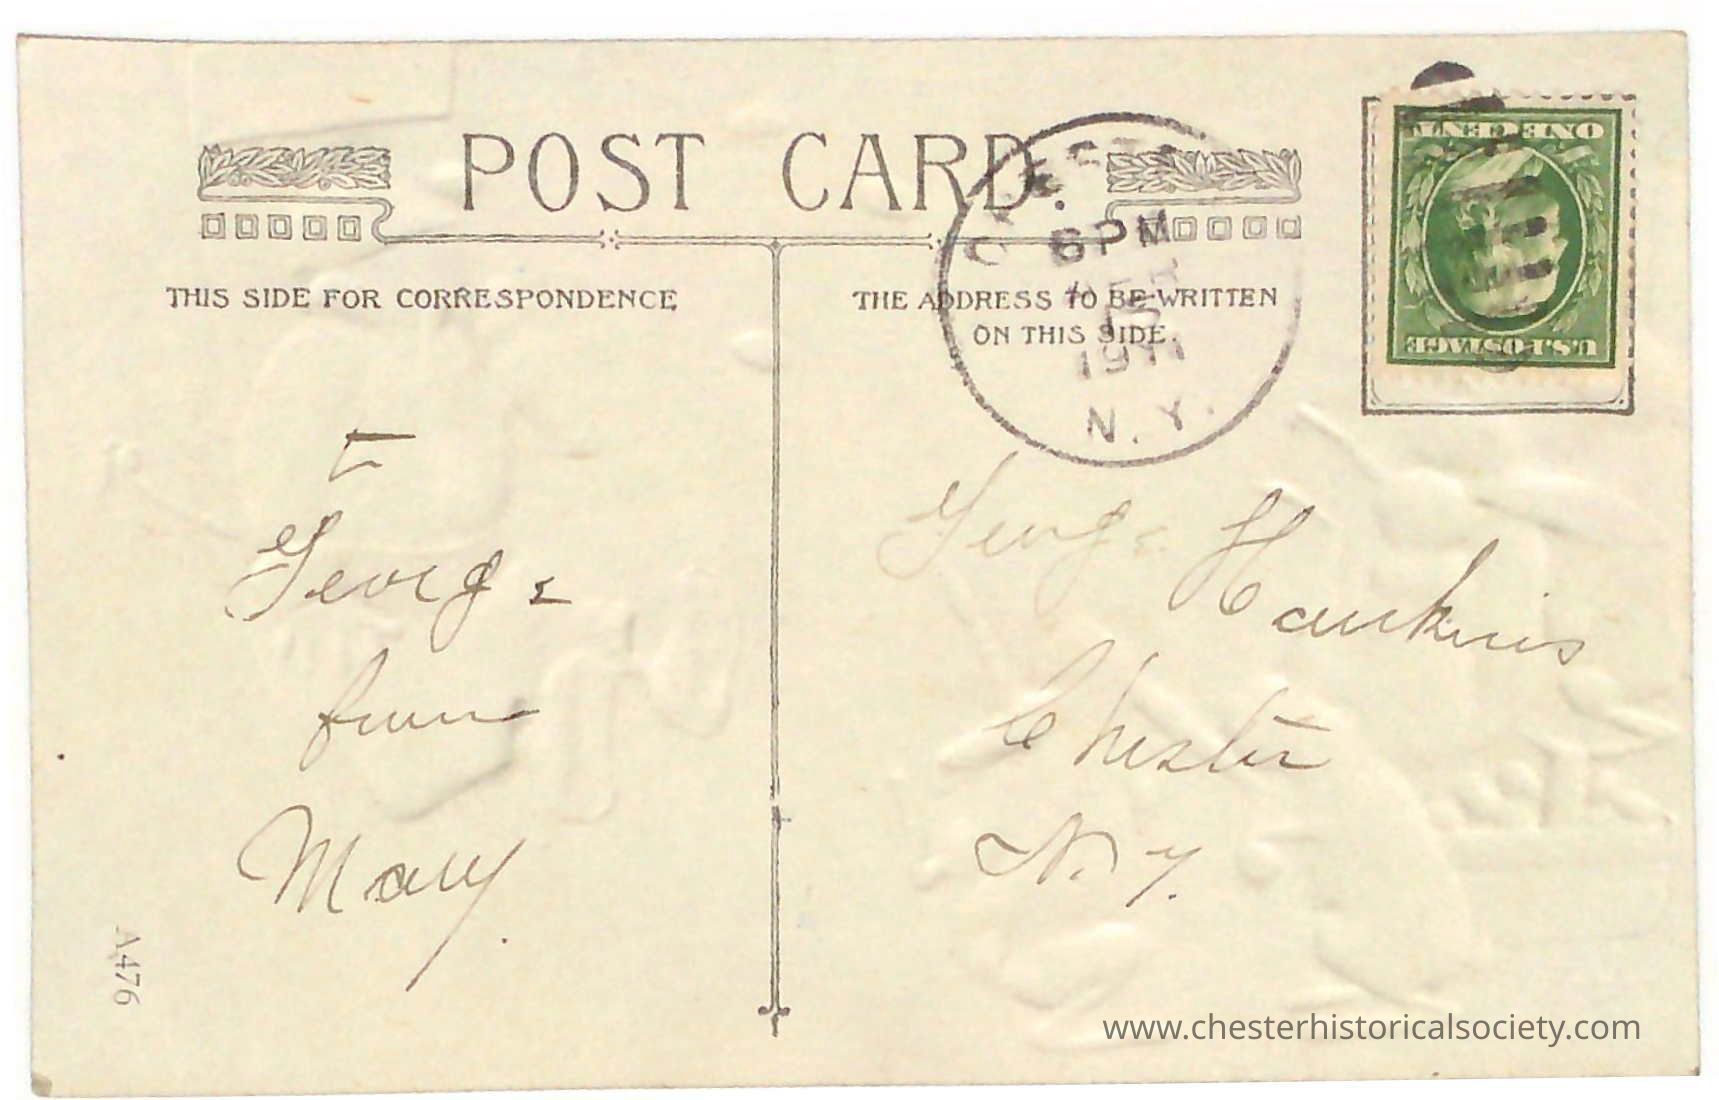 POST CARD.
THIS SIDE FOR CORRESPONDENCE
THE ADDRESS TO BE WRITTEN
ON THIS SIDE.
CHESTER
6 PM
1911
N. Y.
ONE CENT
U.S. POSTAGE
To
George
from
Mary.
George Hankins
Chester
N. Y.
A476
www.chesterhistoricalsociety.com